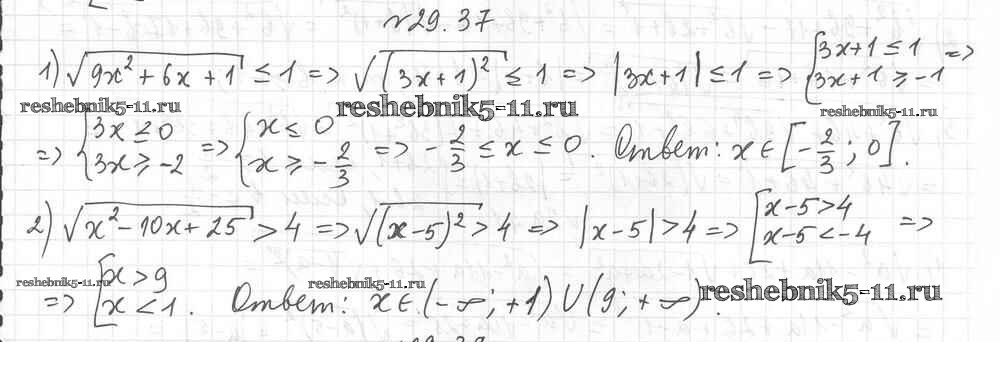 №29.37
1) √(9x² + 6x + 1) ≤ 1 => √((3x+1)²) ≤ 1 => |3x+1| ≤ 1 => { 3x+1 ≤ 1 ; 3x+1 ≥ -1 =>
reshebnik5-11.ru reshebnik5-11.ru reshebnik5-11.ru
=> { 3x ≤ 0 ; 3x ≥ -2 => { x ≤ 0 ; x ≥ -2/3 => -2/3 ≤ x ≤ 0. Ответ: x ∈ [-2/3; 0].
2) √(x² - 10x + 25) > 4 => √((x-5)²) > 4 => |x-5| > 4 => [ x-5 > 4 ; x-5 < -4 =>
reshebnik5-11.ru reshebnik5-11.ru reshebnik5-11.ru
=> [ x > 9 ; x < 1. Ответ: x ∈ (-∞; +1) ∪ (9; +∞).